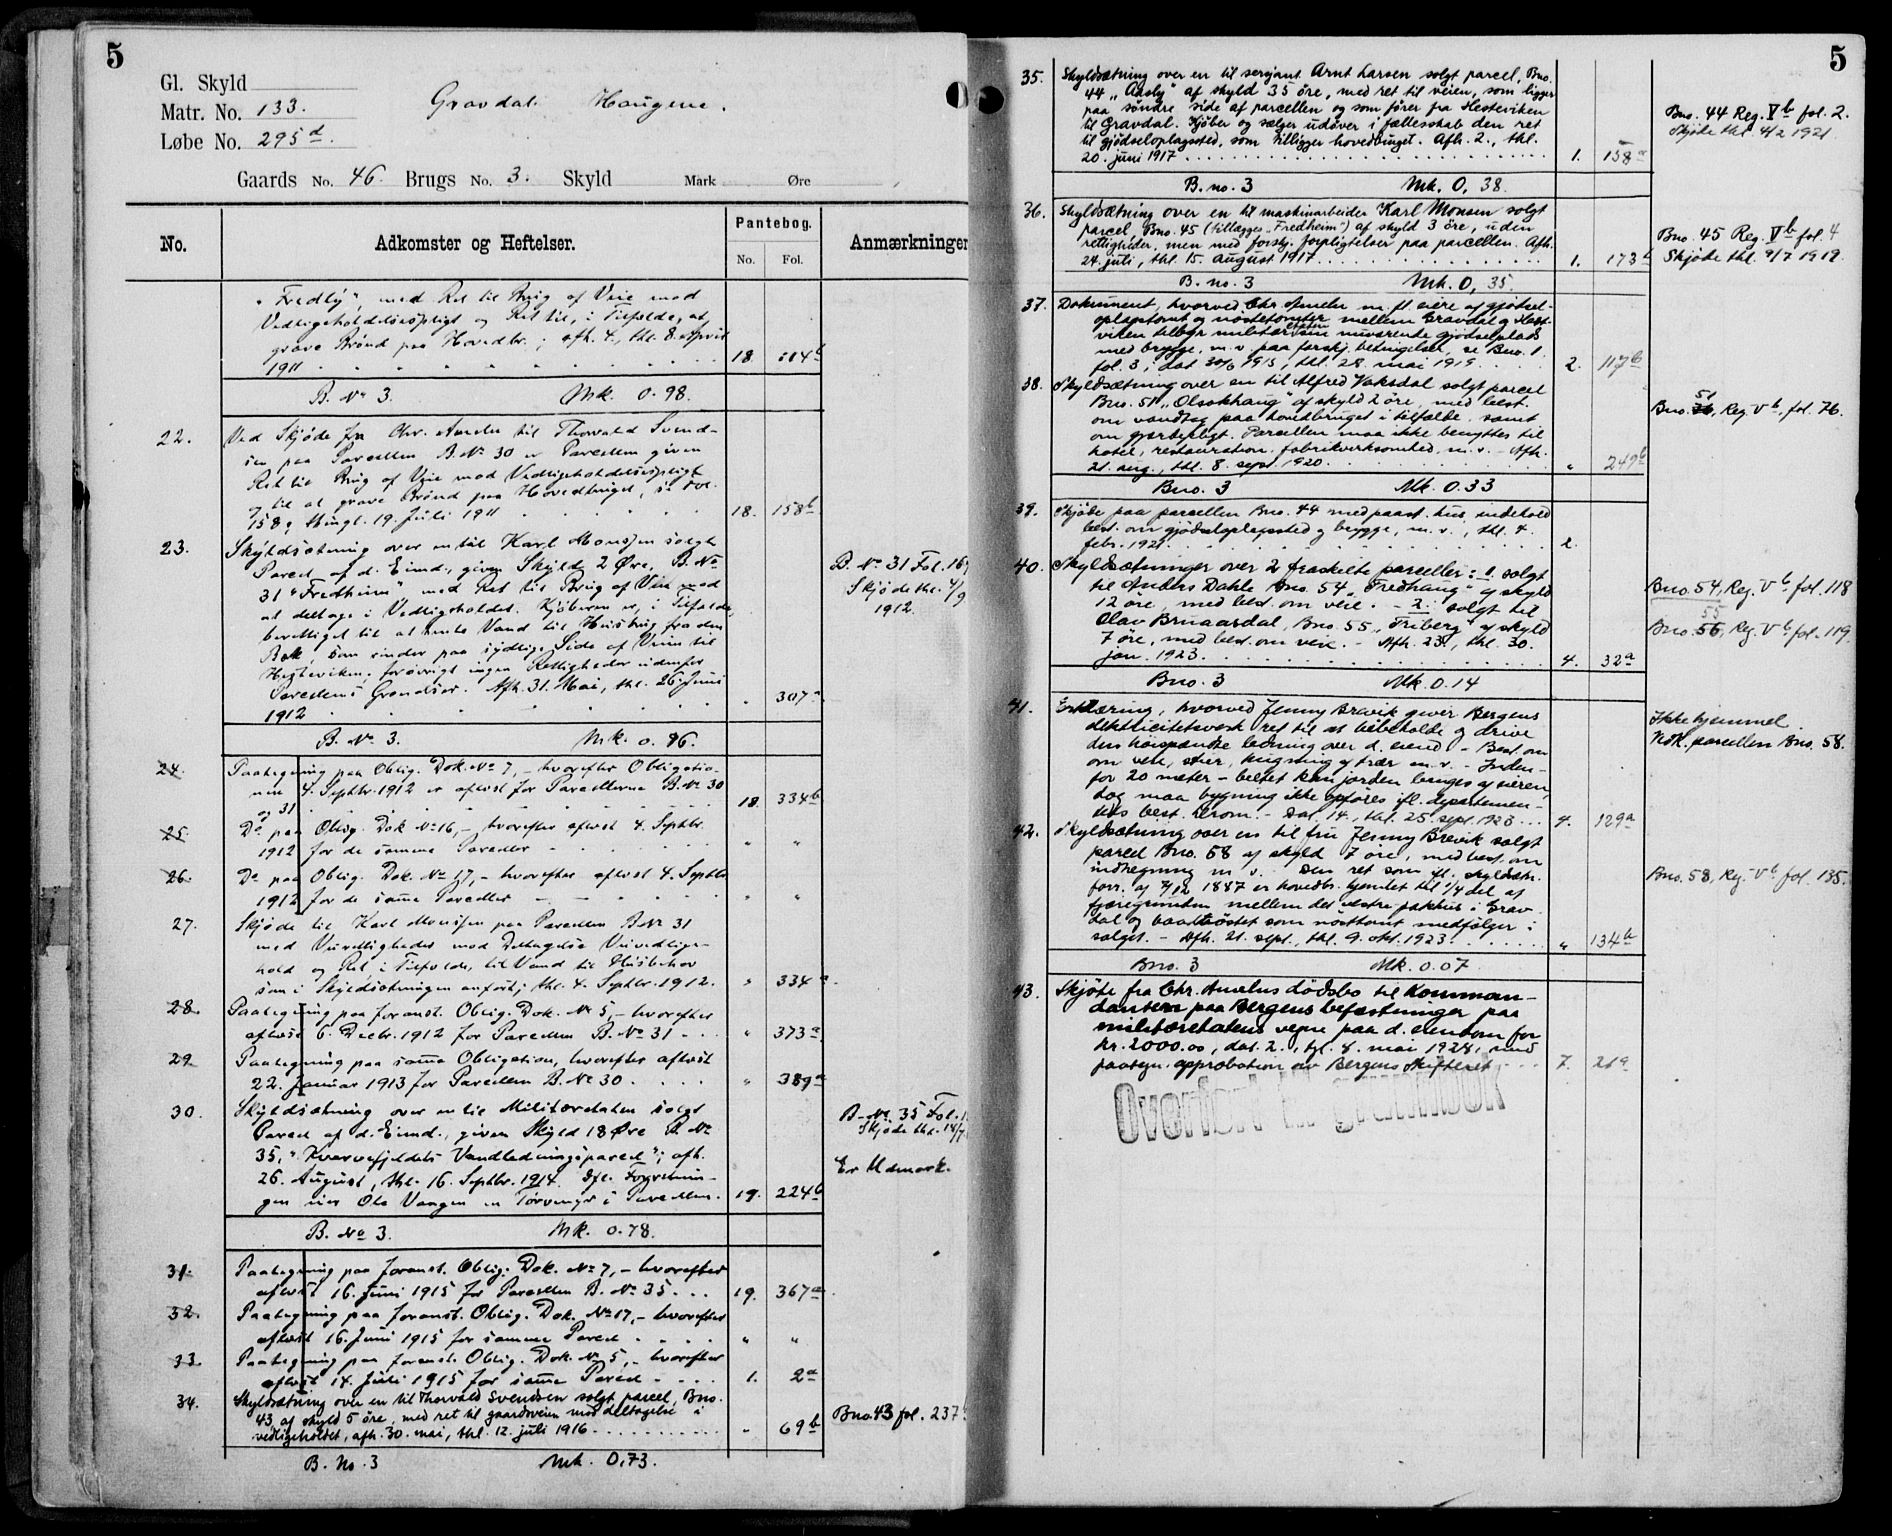 5
Gl. Skyld
Matr. No. 133.
Løbe No. 295d.
Gravdal. Haugene.
Gaards No. 46. Brugs No. 3. Skyld Mark Øre
No.
Adkomster og Heftelser.
Pantebog.
No. Fol.
Anmærkninger
"Fredly", med Ret til Brug af Veie mod
Vedligeholdelsespligt og Ret til, i Tilfælde, at
grave Brønd paa Hovedbr.; afh. 4., thl. 8. April
1911 18. 114b
B. No 3. Mk. 0.98.
22. Ved Skjøde fra Chr. til Thorvald Svend-
sen paa Parcellen B.No 30 er Parcellen given
Ret til Brug af Veie mod Vedligeholdelsespligt
og til at grave Brønd paa Hovedbruget, se Fol.
158, thingl. 19. Juli 1911 18. 158b
23. Skyldsætning over en til Karl Monssen solgt
Parcel af d. Eiend., given Skyld 2 Øre, B.No
31 "Fredheim" med Ret til Brug af Vei mod
at deltage i Vedligeholdet. Kjøberen er, i Tilfælde,
berettiget til at hente Vand til Husbrug fra den
Bæk, som rinder paa sydlige Side af Veien til
Hesteviken; forøvrigt ingen Rettigheder udenfor
Parcellens Grændser. Afh. 31. Mai, thl. 26. Juni
1912 " 307a
B. No 31 Fol. 169
Skjøde thl. 4/9
1912.
B. No 3. Mk. 0.96.
24. Paategning paa Oblig. Dok. No 7, - hvorefter Obligatio-
nen 4. Septbr. 1912 er aflæst for Parcellerne B.No 30
og 31 18. 334b
25. Do paa Oblig. Dok No 16, - hvorefter aflæst 4. Septbr.
1912 for de samme Parceller " "
26. Do paa Oblig. Dok. No 17, - hvorefter aflæst 4. Septbr.
1912 for de samme Parceller " "
27. Skjøde til Karl Monssen paa Parcellen B.No 31
med Veirettigheder mod Deltagelse i Veivedlige-
hold og Ret, i Tilfælde, til Vand til Husbehov
som i Skyldsætningen anført; thl. 4. Septbr. 1912. " 334a
28. Paategning paa foranst. Oblig. Dok. No 5, - hvorefter
aflæst 6. Decbr. 1912 for Parcellen B. No 31 " 373a
29. Paategning paa samme Obligation, hvorefter aflæst
22. Januar 1913 for Parcellen B. No 30. " 389a
30. Skyldsætning over en til Militæretaten solgt
Parcel af d. Eiend., given Skyld 18 Øre B. No
35, "Kvarvefjeldets Vandledningsparcel"; afh.
26. August, thl. 16. Septbr. 1914. Dfl. Forretnin-
gen eier Ole Vaagen en Torvmyr i Parcellen. 19. 224b
B. No 35 Fol. 1
Skjøde thl. 14/7
Er Udmark.
B. No 3. Mk. 0.78.
31. Paategning paa foranst. Oblig. Dok. No 7, - hvorefter
aflæst 16. Juni 1915 for Parcellen B. No 35. 19. 367a
32. Paategning paa foranst. Oblig. Dok. No 17, - hvorefter
aflæst 16. Juni 1915 for samme Parcel " "
33. Paategning paa foranst. Oblig. Dok. No 5, - hvorefter
aflæst 14. Juli 1915 for samme Parcel 1. 2a
34. Skyldsætning over en til Thorvald Svendsen solgt parcel, Bno.
43 af skyld 5 øre, med ret til gaardsveien mod deltagelse i
vedligeholdet, afh. 30. mai, thl. 12. juli 1916 " 69b
Bno. 43 fol. 237
B. No. 3 Mk. 0,73.
5
35. Skyldsætning over en til serjant Arnt Larsen solgt parcel, Bno.
44 "Aasly" af skyld 35 øre, med ret til veien, som ligger
paa søndre side af parcellen og som fører fra Hesteviken
til Gravdal. Kjøber og sælger udøver i fællesskab den ret
til gjødseloplagssted, som tilligger hovedbruget. Afh. 2., thl.
20. juni 1917 1. 158a
Bno. 44 Reg. Vb fol. 2.
Skjøte thl. 4/2 1921.
B. no. 3 Mk. 0, 38.
36. Skyldsætning over en til maskinarbeider Karl Monsen solgt
parcel, Bno. 45 (tillægges "Fredheim") af skyld 3 øre, uden
rettigheder, men med forskj. forpligtelser paa parcellen. Afh.
24. juli, thl. 15. august 1917 1. 173b
Bno. 45 Reg. Vb fol. 4
Skjøte thl. 9/7 1919.
B. no. 3 Mk. 0, 35.
37. Dokument, hvorved Chr. m. fl. eiere af gjødsel-
oplagstomt og nøstetomter mellem Gravdal og Heste-
viken tilbyr militæretaten sin nuværende gjødselplads
med brygge, m. v. paa forskj. betingelser, se Bno. 1
fol. 3, dat 30/6 1915, thl. 28. mai 1919. 2. 117b
38. Skyldsætning over en til Alfred Vaksdal solgt parcel
Bno. 51 "Olsokhaug" af skyld 2 øre, med best.
om vandtag paa hovedbruget i tilfælde, samt
om gjerdepligt. Parcellen maa ikke benyttes til
hotel, restauration, fabrikvirksomhed, m. v. - Afh.
21. aug., thl. 8. sept. 1920. " 249b
51
Bno. , Reg. Vb, fol. 76.
Bno. 3 Mk. 0.33
39. Skjøte paa parcellen Bno. 44 med paast. hus, indehold.
best. om gjødseloplagssted og brygge, m. v., thl. 4.
febr. 1921. 2.
40. Skyldsætninger over 2 fraskilte parceller: 1. solgt
til Anders Dahle Bno. 54 "Fredhaug" af skyld
12 øre, med best. om veie. - 2. solgt til
Olav Bruaasdal, Bno. 55 "Friberg" af skyld
7 øre, med best. om veie. - Afh. 23., thl. 30.
jan. 1923. 4. 32a
Bno. 54, Reg. Vb fol. 118
55
Bno. 56, Reg. Vb fol. 119.
Bno. 3 Mk. 0.14
41. Erklæring, hvorved Jenny Brevik giver Bergens
elektricitetsverk ret til at bibeholde og drive
den høispændte ledning over d. eiend. - Best. om
om veie, stier, hugning af trær m. v. - Inden-
for 20 meter - beltet kan jorden bruges af eieren,
dog maa bygning ikke opføres ifl. departemen-
tets best. herom. - Dat. 14., thl. 25. sept. 1923 4. 129a
Ikke hjemmel
Vedk. parcellen Bno. 58.
42. Skyldsætning over en til fru Jenny Brevik solgt
parcel Bno. 58 af skyld 7 øre, med best. om
indhegning m. v. Den ret som ifl. skyldsæt.
forr. af 7/12 1887 er hovedbr. hjemlet til 1/4 del af
fjæregrunden mellem det vestre pakhus i Grav-
dal og baatstøet som nøsttomt medfølger i
salget. - Afh. 21. sept., thl. 9. okt. 1923 " 134b
Bno. 58, Reg. Vb fol. 135.
Bno. 3 Mk. 0.07
43. Skjøte fra Chr. dødsbo til Komman-
danten paa Bergens befæstninger paa
militæretatens vegne paa d. eiendom for
kr. 2000.00, dat. 2., tgl. 8. mai 1928, med
paategn. approbation av Bergens Skifteret 7. 21a
Overført til grunnbok